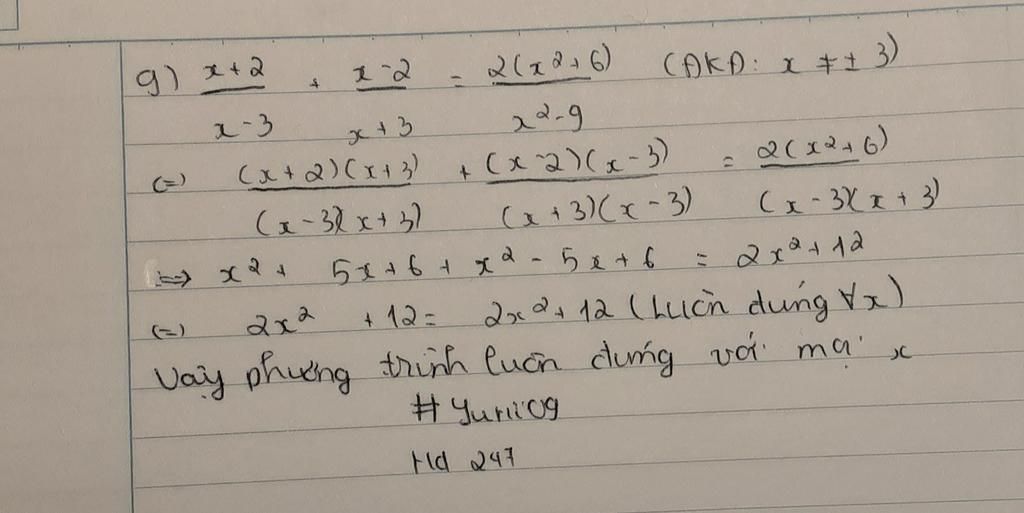 g) x+2 / x-3 + x-2 / x+3 = 2(x²+6) / x²-9 (ĐKĐ: x ≠ ± 3)
(=) (x+2)(x+3) / (x-3)(x+3) + (x-2)(x-3) / (x+3)(x-3) = 2(x²+6) / (x-3)(x+3)
=> x² + 5x+6 + x² - 5x+6 = 2x²+12
(=) 2x² +12 = 2x²+12 (Luôn đúng ∀x)
Vậy phương trình luôn đúng với mọi x
#Yurii09
Hd 247